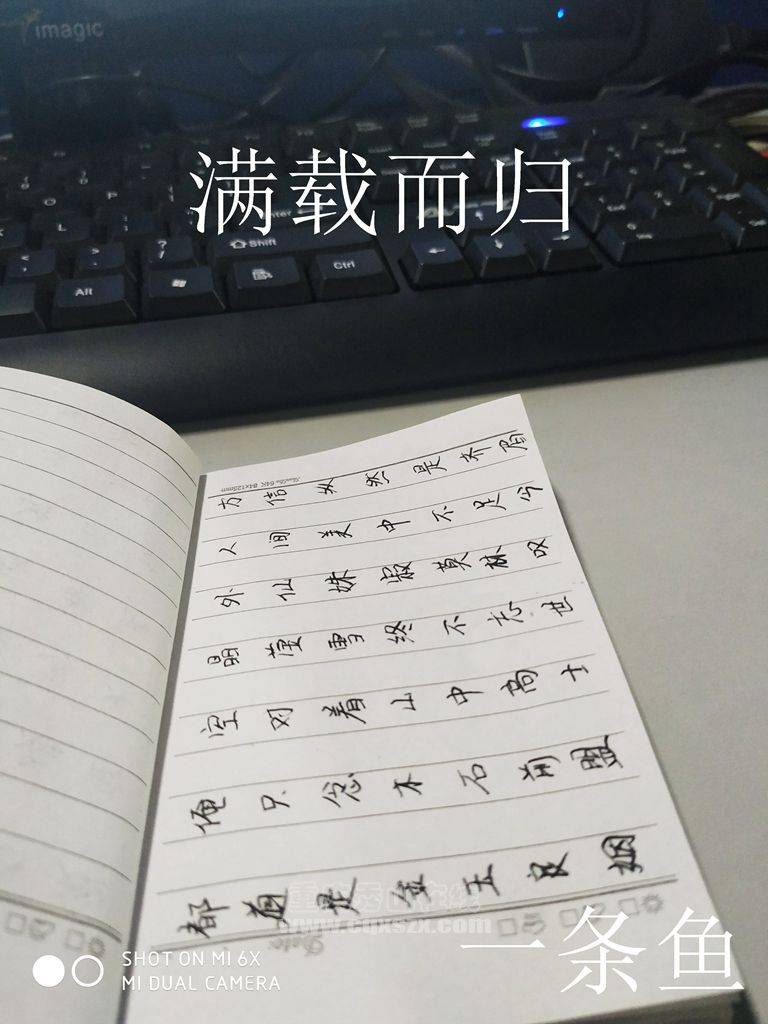 imagic
满载而归
Enter
Shift
Alt
Ctrl
64K 84x125mm
都道是金玉良姻
俺只念木石前盟
空对着山中高士
晶莹雪终不忘世
外仙姝寂莫林叹
人间美中不足今
方信纵然是齐眉
Date:
www.cqxszx.com
一条鱼
SHOT ON MI 6X
MI DUAL CAMERA